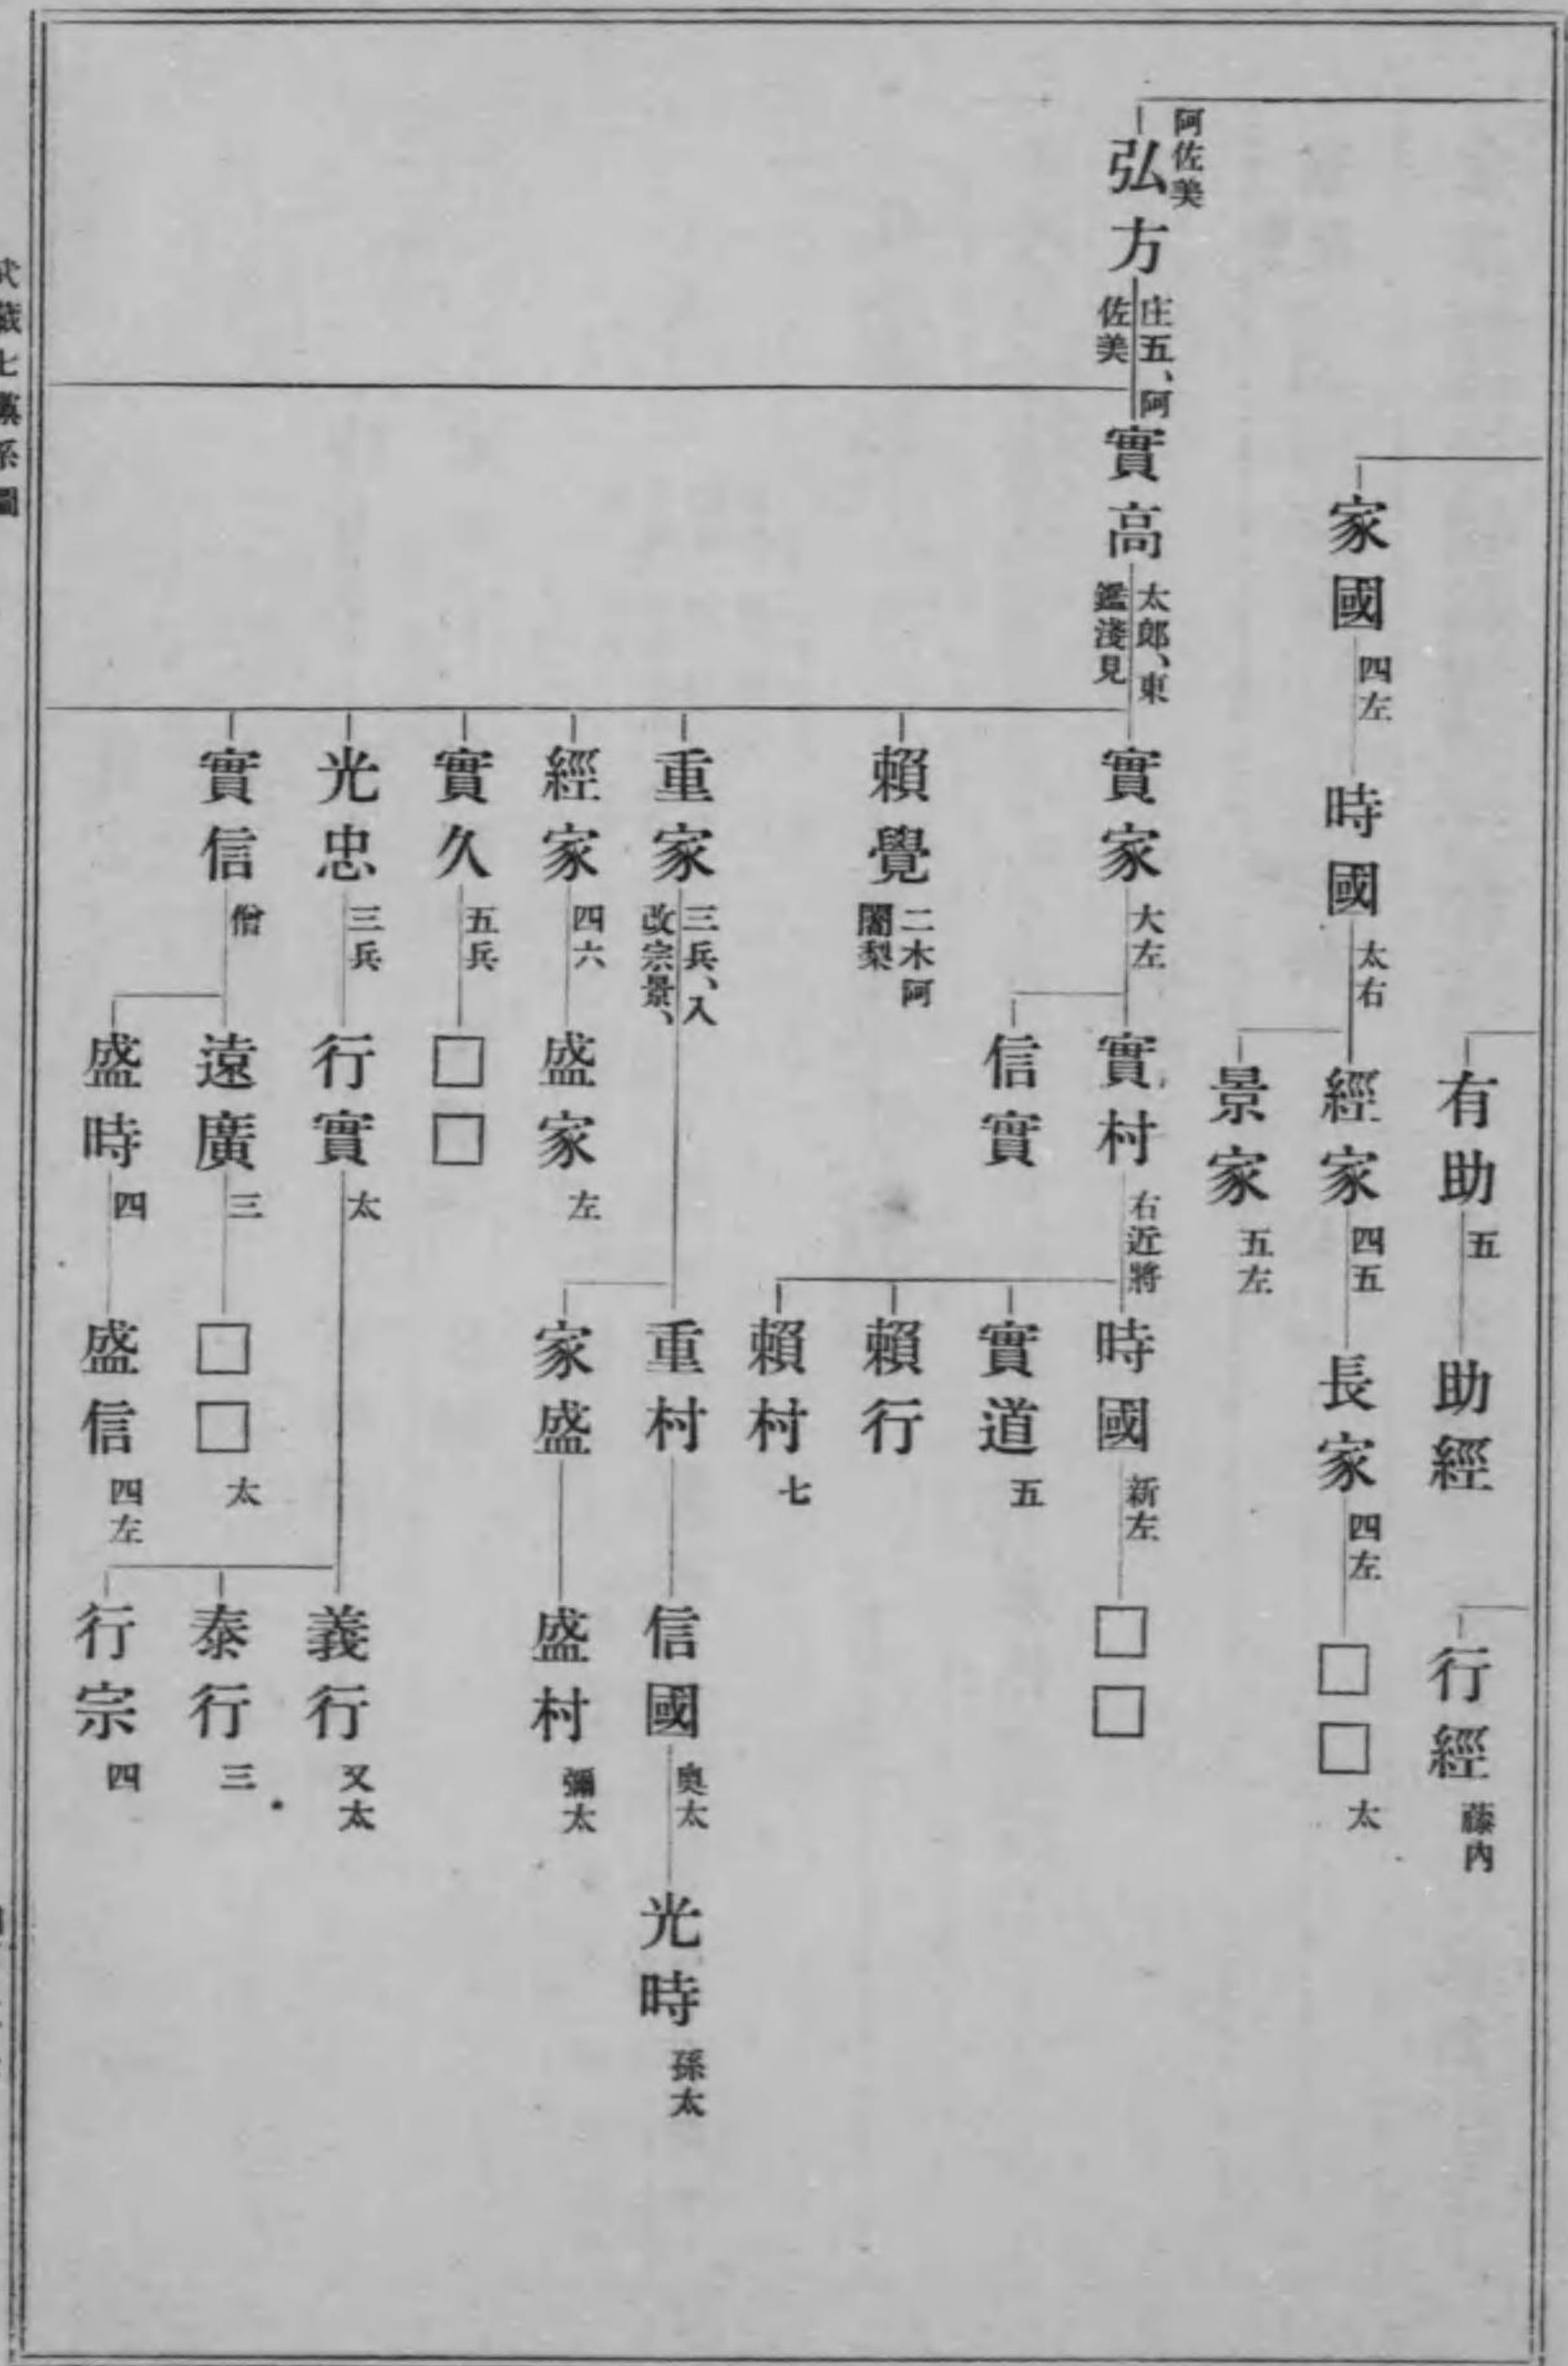 有助 五
助經
行經 藤內
家國 四左
時國 太右
經家 四五
長家 四左
□□ 太
景家 五左
阿佐美
弘方 庄五、阿佐美
實高 太郎、東鑑淺見
實家 大左
實村 右近將
時國 新左
□□
實道 五
賴行
賴村 七
信實
賴覺 二木阿闍梨
重家 三兵、入改宗景、
重村
信國 奧太
光時 孫太
家盛
盛村 彌太
經家 四六
盛家 左
實久 五兵
□□
光忠 三兵
行實 太
義行 又太
泰行 三
行宗 四
實信 僧
遠廣 三
□□ 太
盛時 四
盛信 四左
武藏七黨系圖